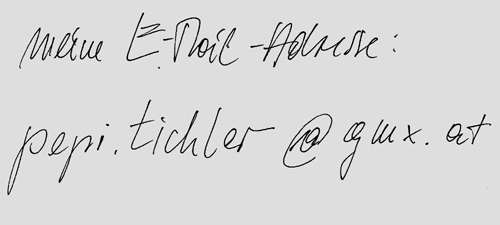 meine E-Mail-Adresse:
pepi.tichler@gmx.at